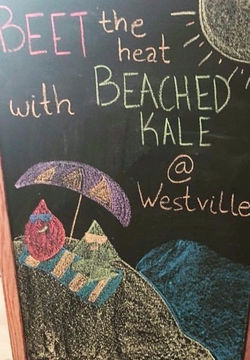 BEET the
heat
with BEACHED
KALE
@
Westville